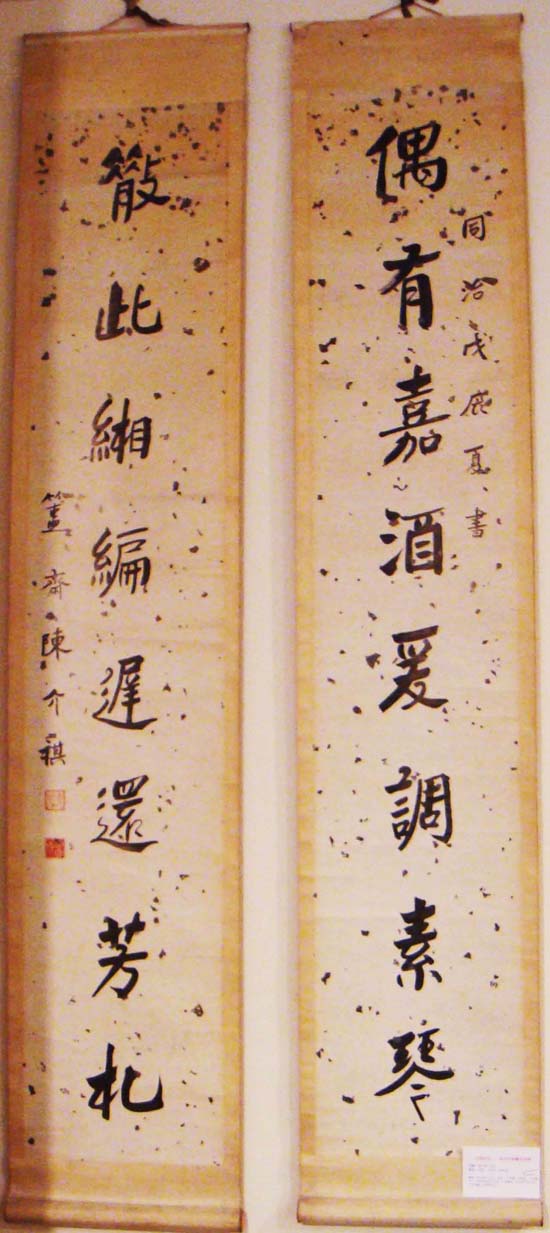 同治戊辰夏書
偶有嘉酒爰調素琴
散此緗編遲還芳札
簠齋陳介祺